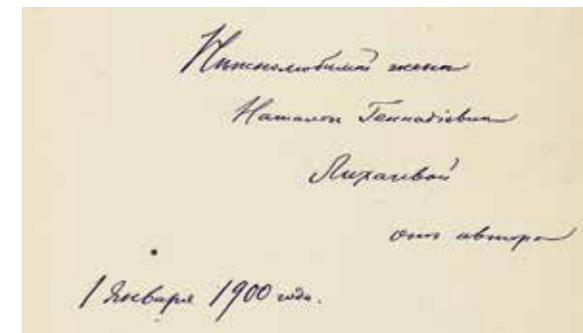 Нѣжнолюбимой женѣ
Наталіи Геннадіевнѣ
Лихачевой
отъ автора
1 Января 1900 года.